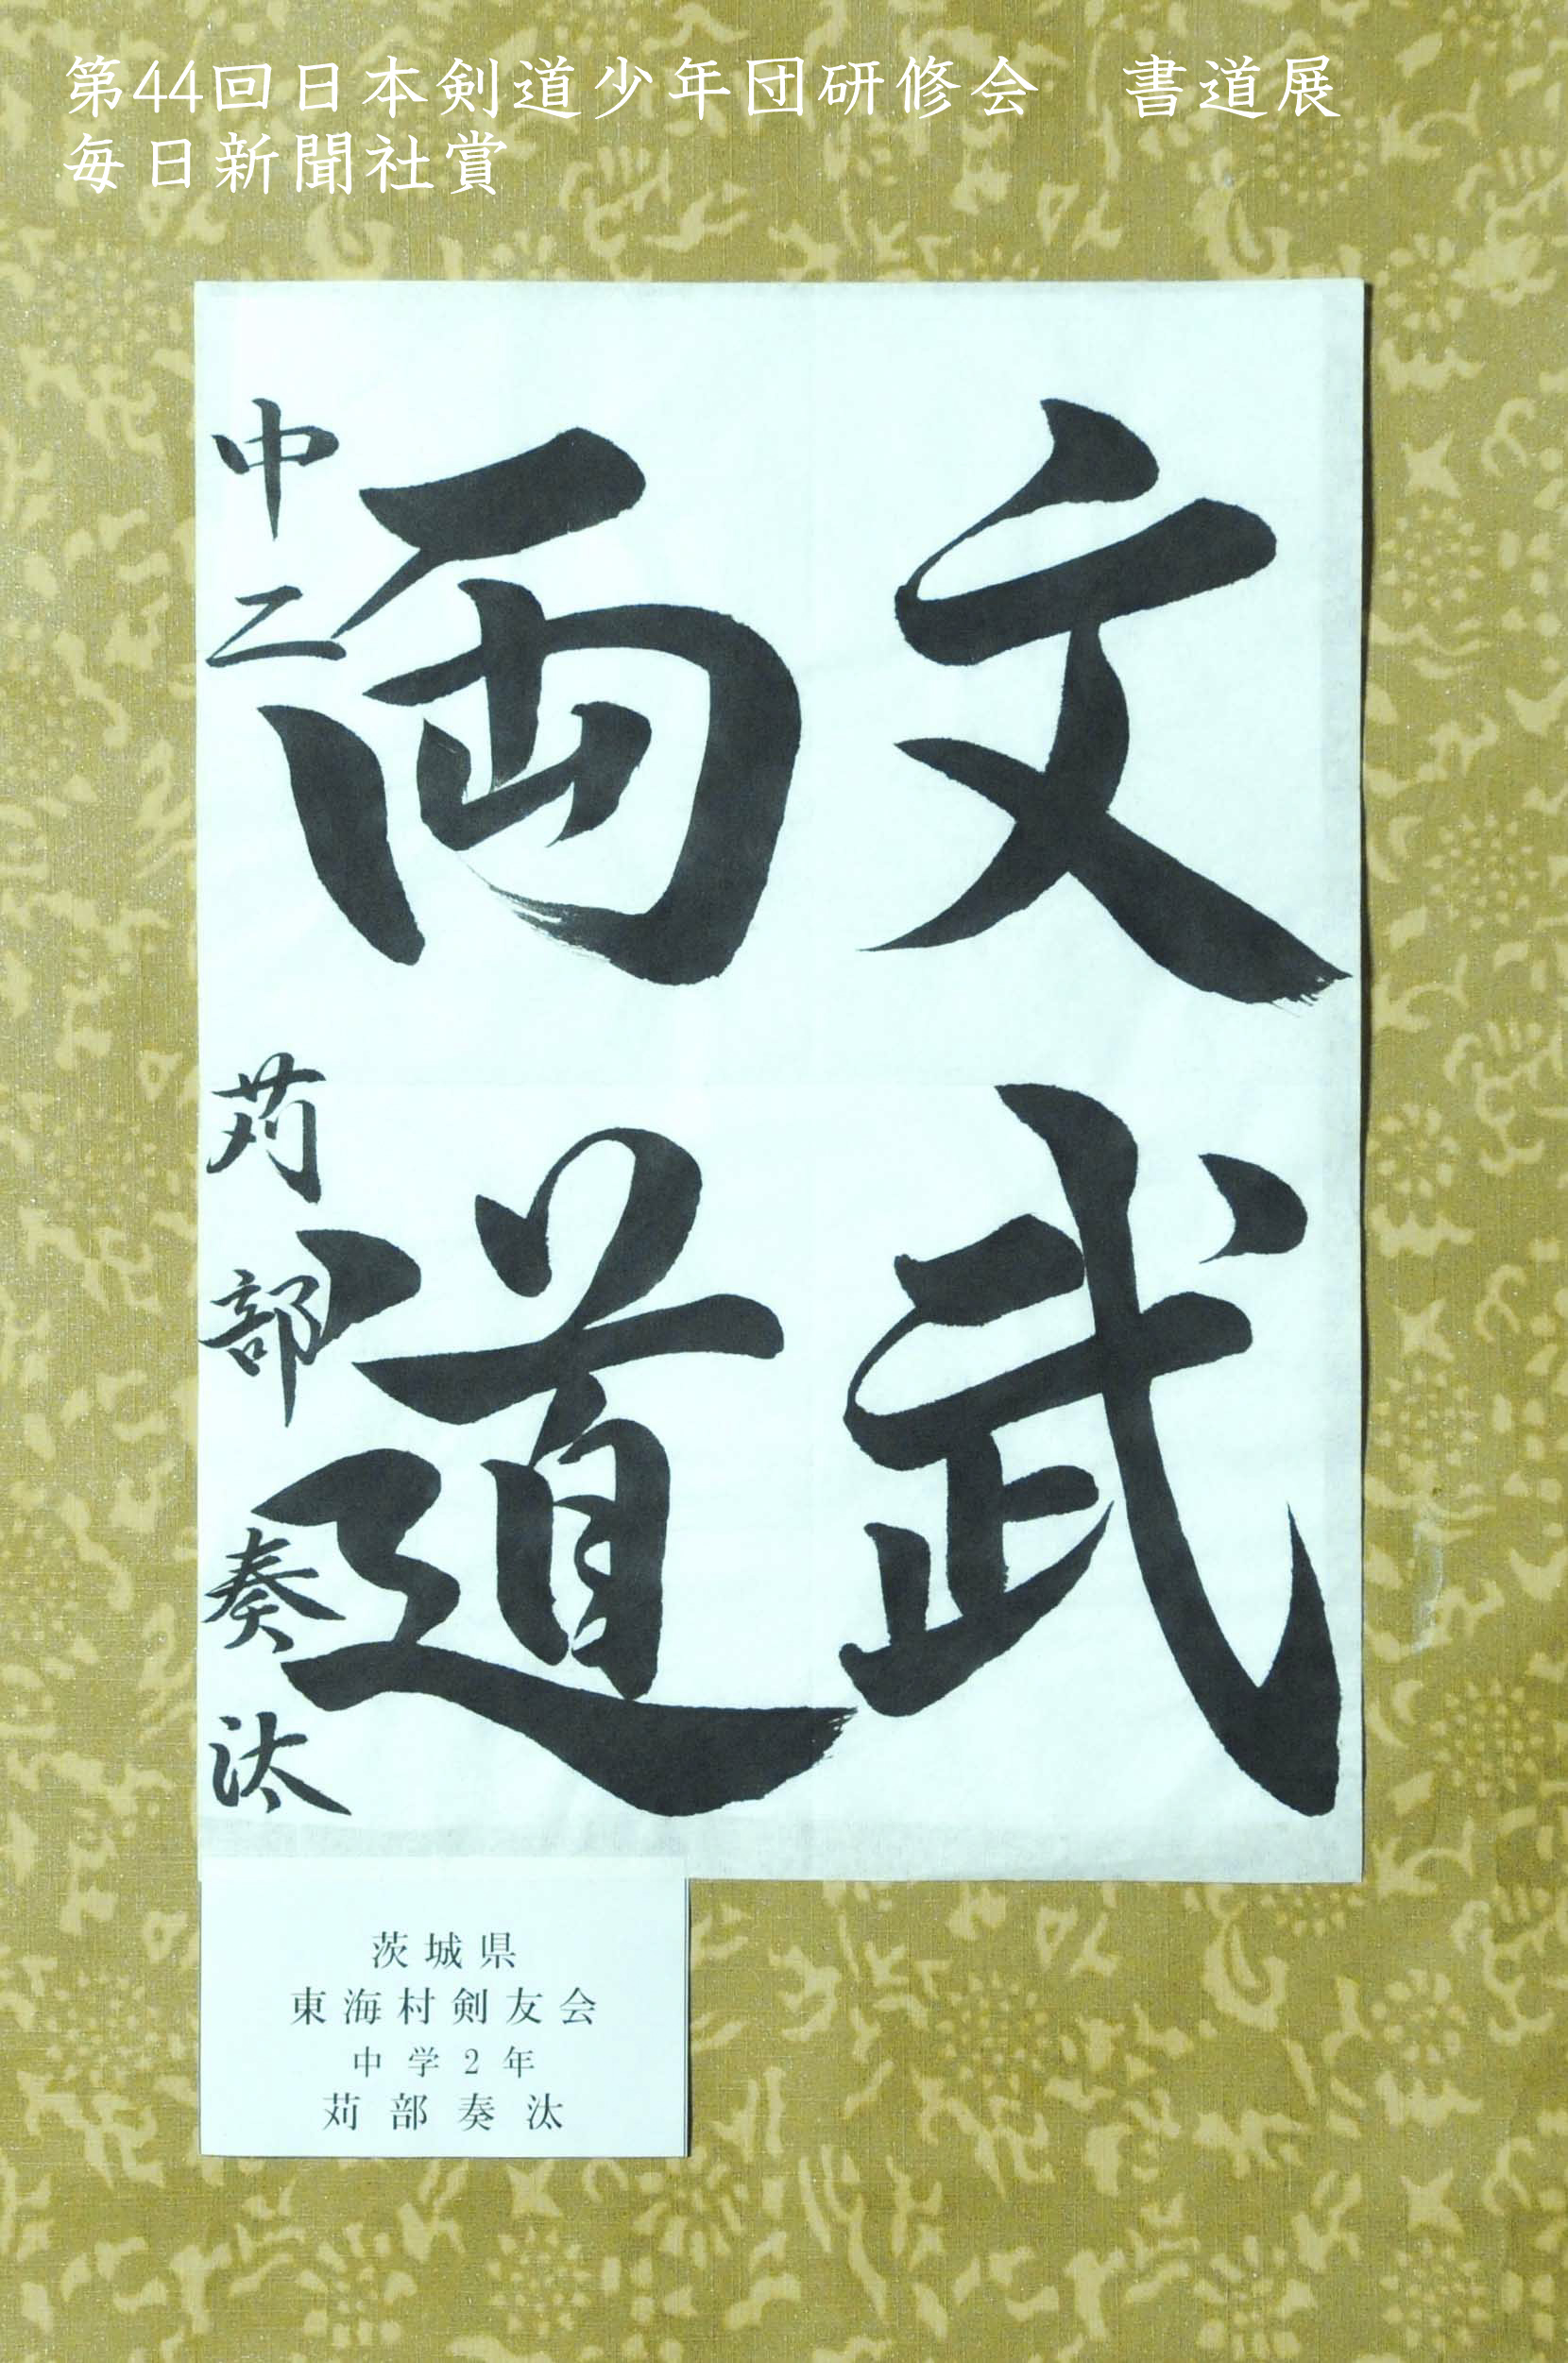 第44回日本剣道少年団研修会　書道展
毎日新聞社賞
文武
両道
中二 苅部奏汰
茨城県
東海村剣友会
中学2年
苅部奏汰